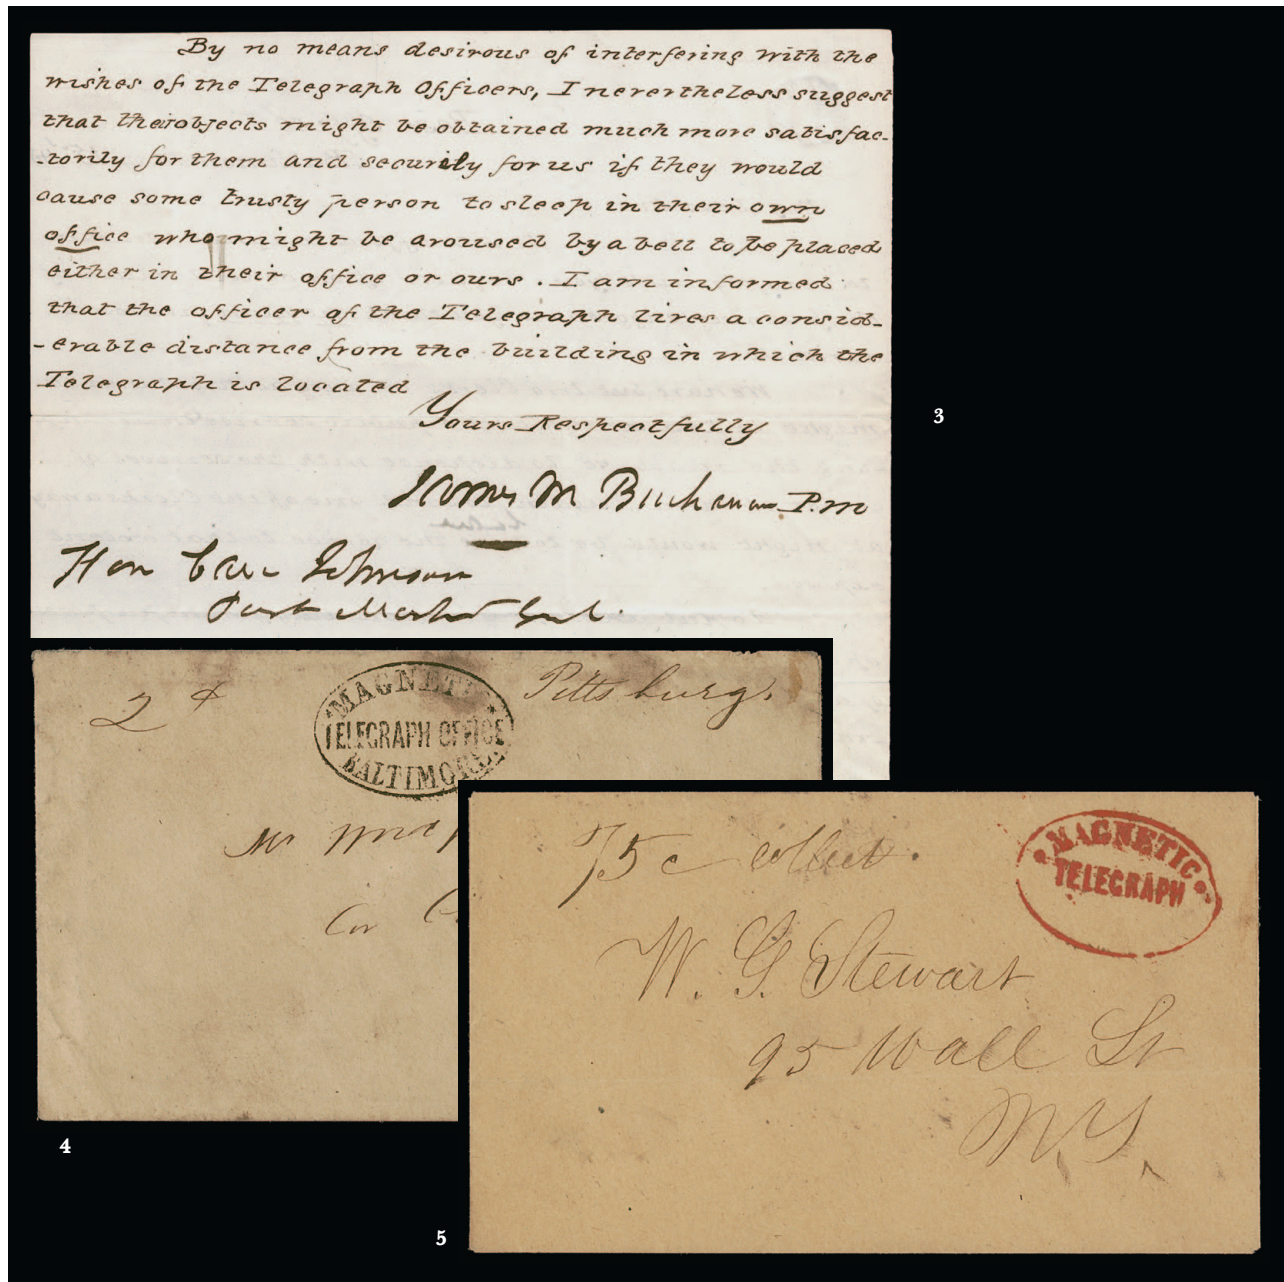 By no means desirous of interfering with the
wishes of the Telegraph Officers, I nevertheless suggest
that their objects might be obtained much more satisfac-
-torily for them and securily for us if they would
cause some trusty person to sleep in their own
office who might be aroused by a bell to be placed
either in their office or ours. I am informed
that the officer of the Telegraph lives a consid-
-erable distance from the building in which the
Telegraph is located
Yours Respectfully
James M Buchanan P.m
Hon Cave Johnson
Post Master Genl.
3
2 d
MAGNETIC
TELEGRAPH OFFICE
BALTIMORE
Pittsburg
Mr
4
75c collect.
MAGNETIC
TELEGRAPH
W. G. Stewart
95 Wall St
N.Y.
5